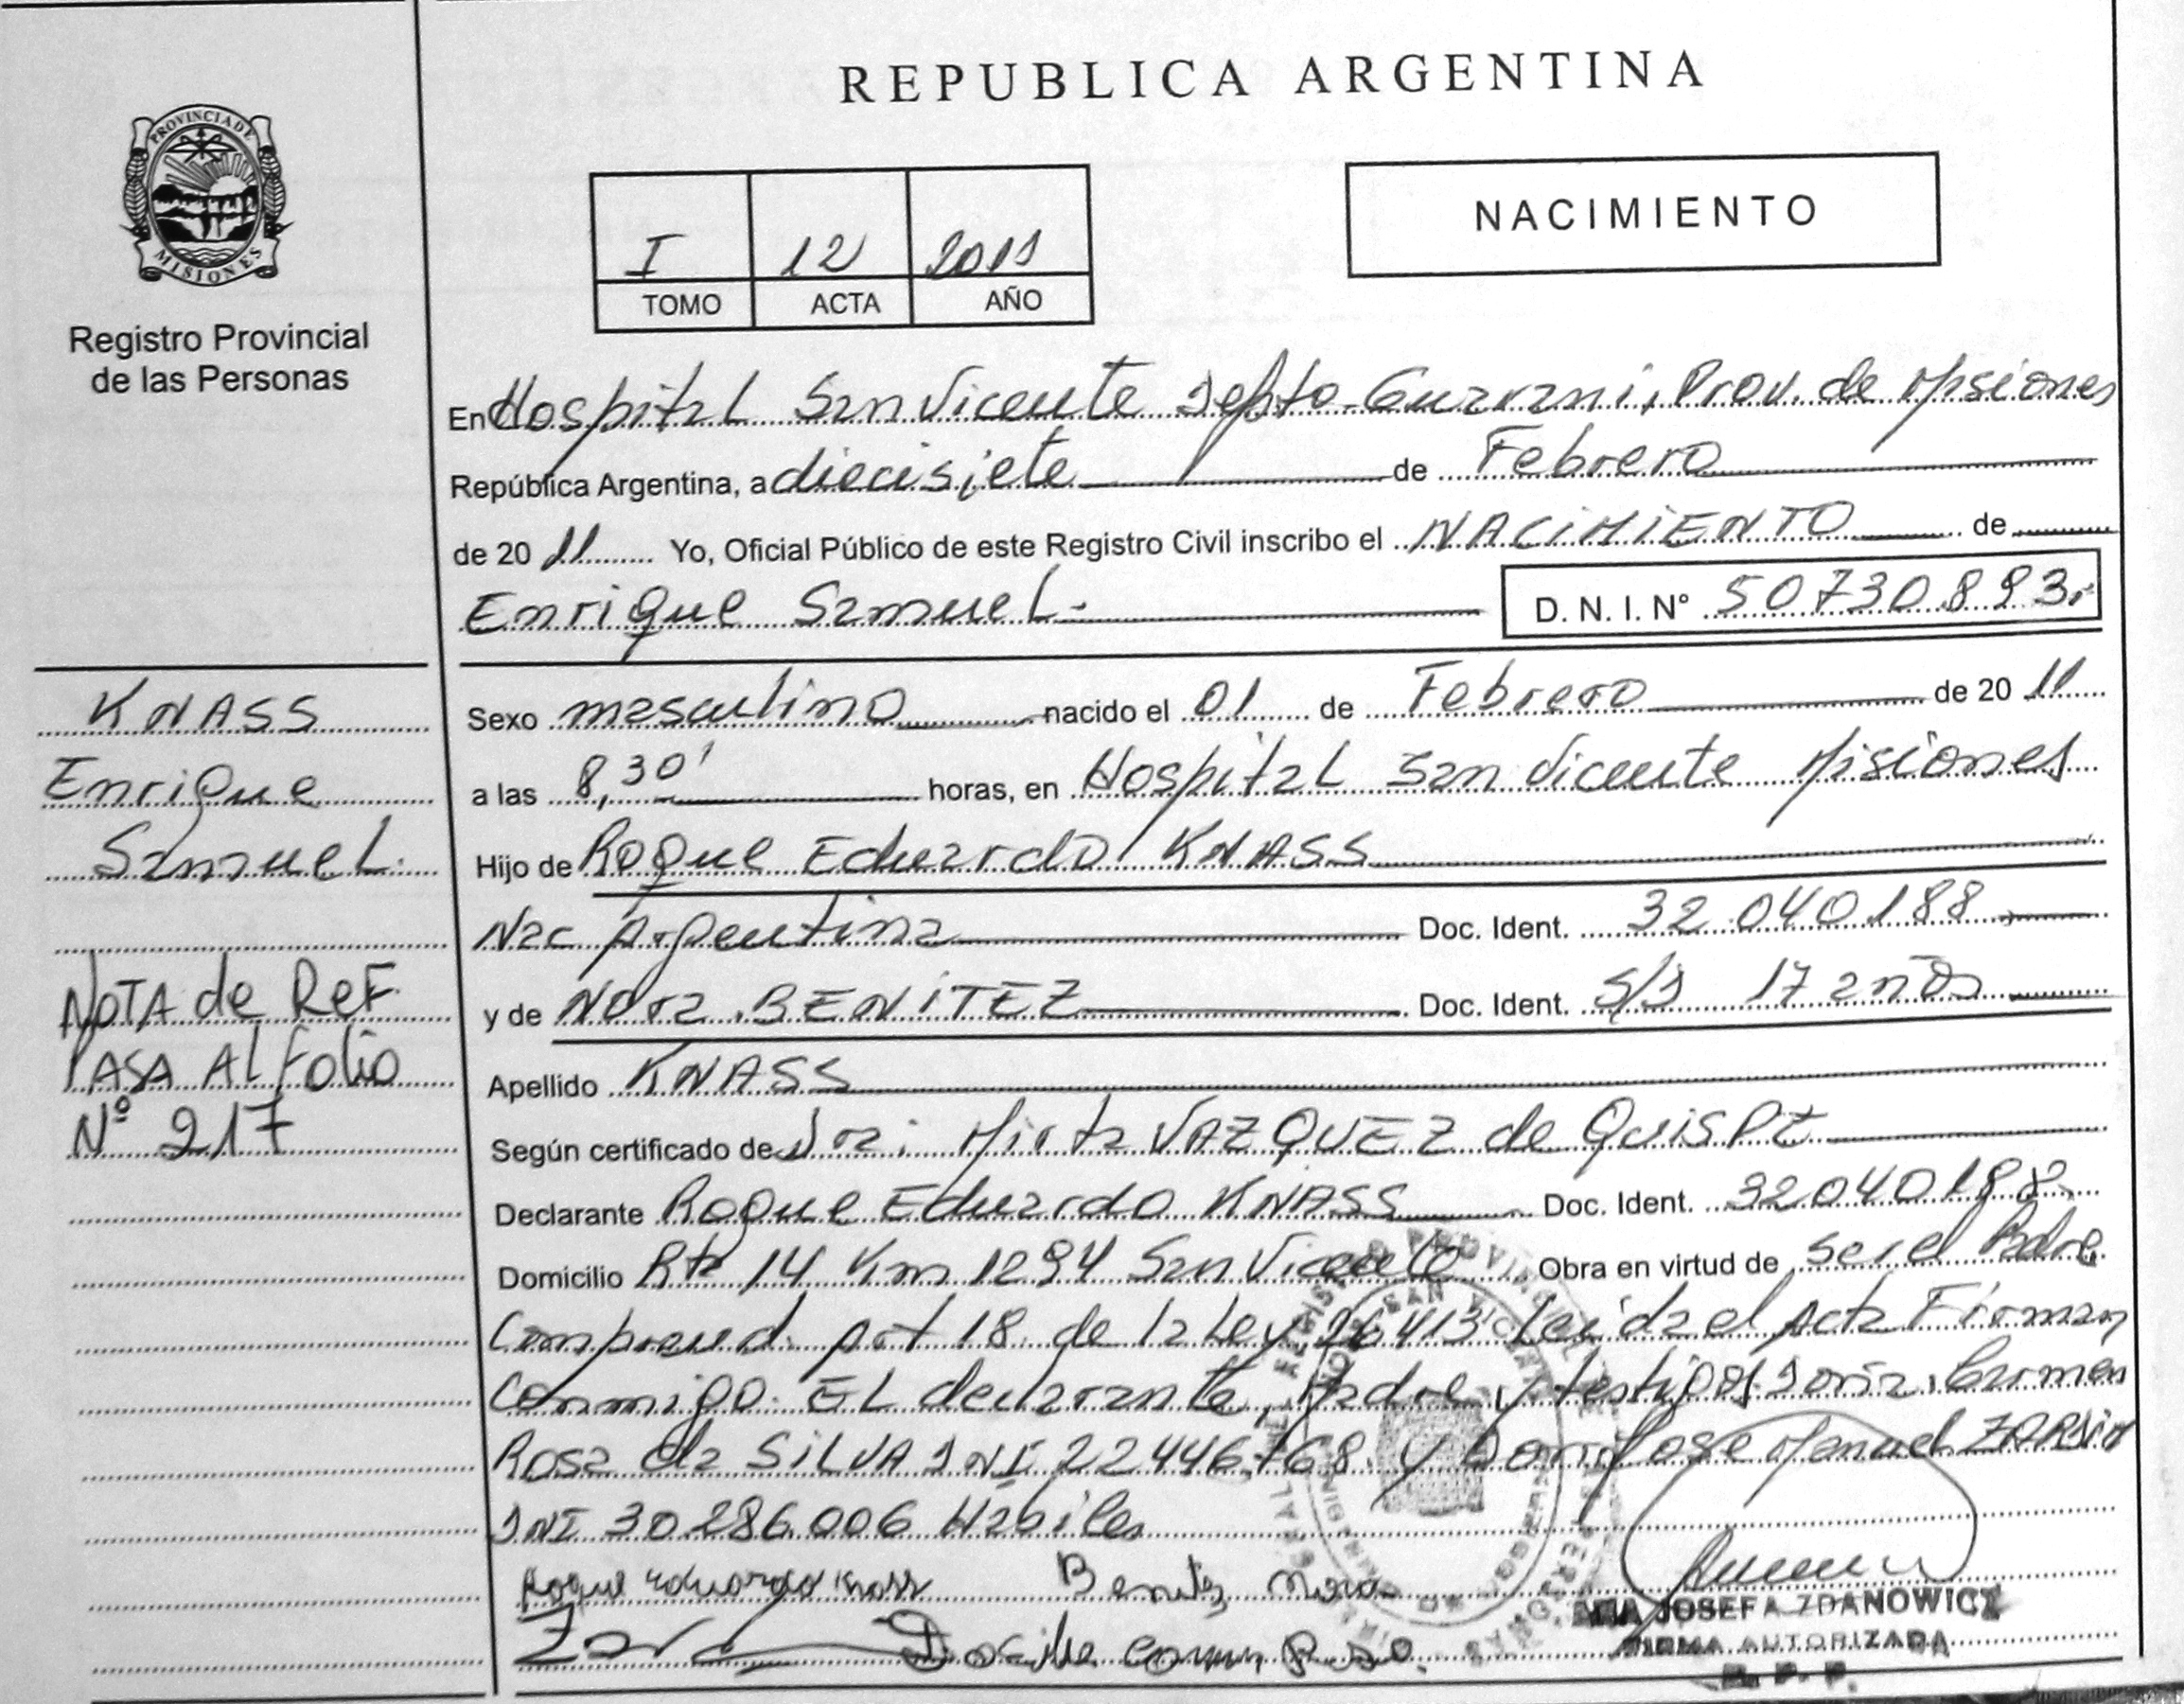 REPUBLICA ARGENTINA
PROVINCIA DE
MISIONES
Registro Provincial
de las Personas
I 12 2011
TOMO ACTA AÑO
NACIMIENTO
En Hospital San Vicente Depto. Guarani, Prov. de Misiones
República Argentina, a diecisiete de Febrero
de 20 11 Yo, Oficial Público de este Registro Civil inscribo el NACIMIENTO de
Enrique Samuel.- D. N. I. N° 50730893.-
KNASS
Enrique
Samuel.
NOTA de REF.
PASA AL Folio
Nº 217
Sexo masculino nacido el 01 de Febrero de 20 11
a las 8,30' horas, en Hospital San Vicente Misiones
Hijo de Roque Eduardo KNASS
Nac Argentina Doc. Ident. 32.040.188
y de Nora BENITEZ Doc. Ident. S/D 17 años
Apellido KNASS
Según certificado de Dra: Mirta VAZQUEZ de
Declarante Roque Eduardo KNASS Doc. Ident. 32040188
Domicilio Rta 14 Km 1294 San Vicente Obra en virtud de ser el Padre
Comprend. Art 18 de la Ley 26413 Leida el Acta Firman
Conmigo EL declarante, Madre y testigos Doña Carmen
Rosa da SILVA DNI 22446768 y Don Jose Manuel
DNI 30.286.006 Hábiles
Roque Eduardo Knass Benitez Nora
ANA JOSEFA ZDANOWICZ
FIRMA AUTORIZADA
R. P. P.